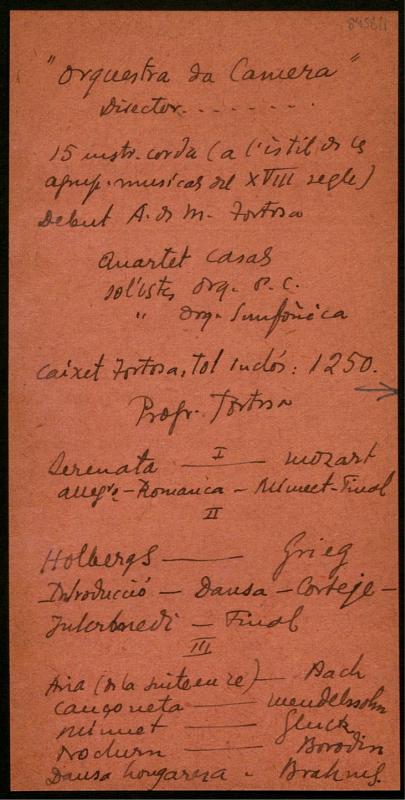 "Orquestra da Camera"
Director........
15 instr. corda (a l'istil de les
agrup. musicals del XVIII segle)
Debut A. de M. Tortosa
Quartet Casals
Solistes Orq. P. C.
" Orq. Simfònica
Caixet Tortosa, tot inclós: 1250.
Progr. Tortosa
I
Serenata — Mozart
Allegro - Romanica - Minuet - Final
II
Holbergs — Grieg
Introducció - Dansa - Corteje -
Intermedi - Final
III
Aria (de la suite en re) — Bach
Cançoneta — Mendelssohn
Minuet — Gluck
Nocturn — Borodin
Dansa hongaresa - Brahms.